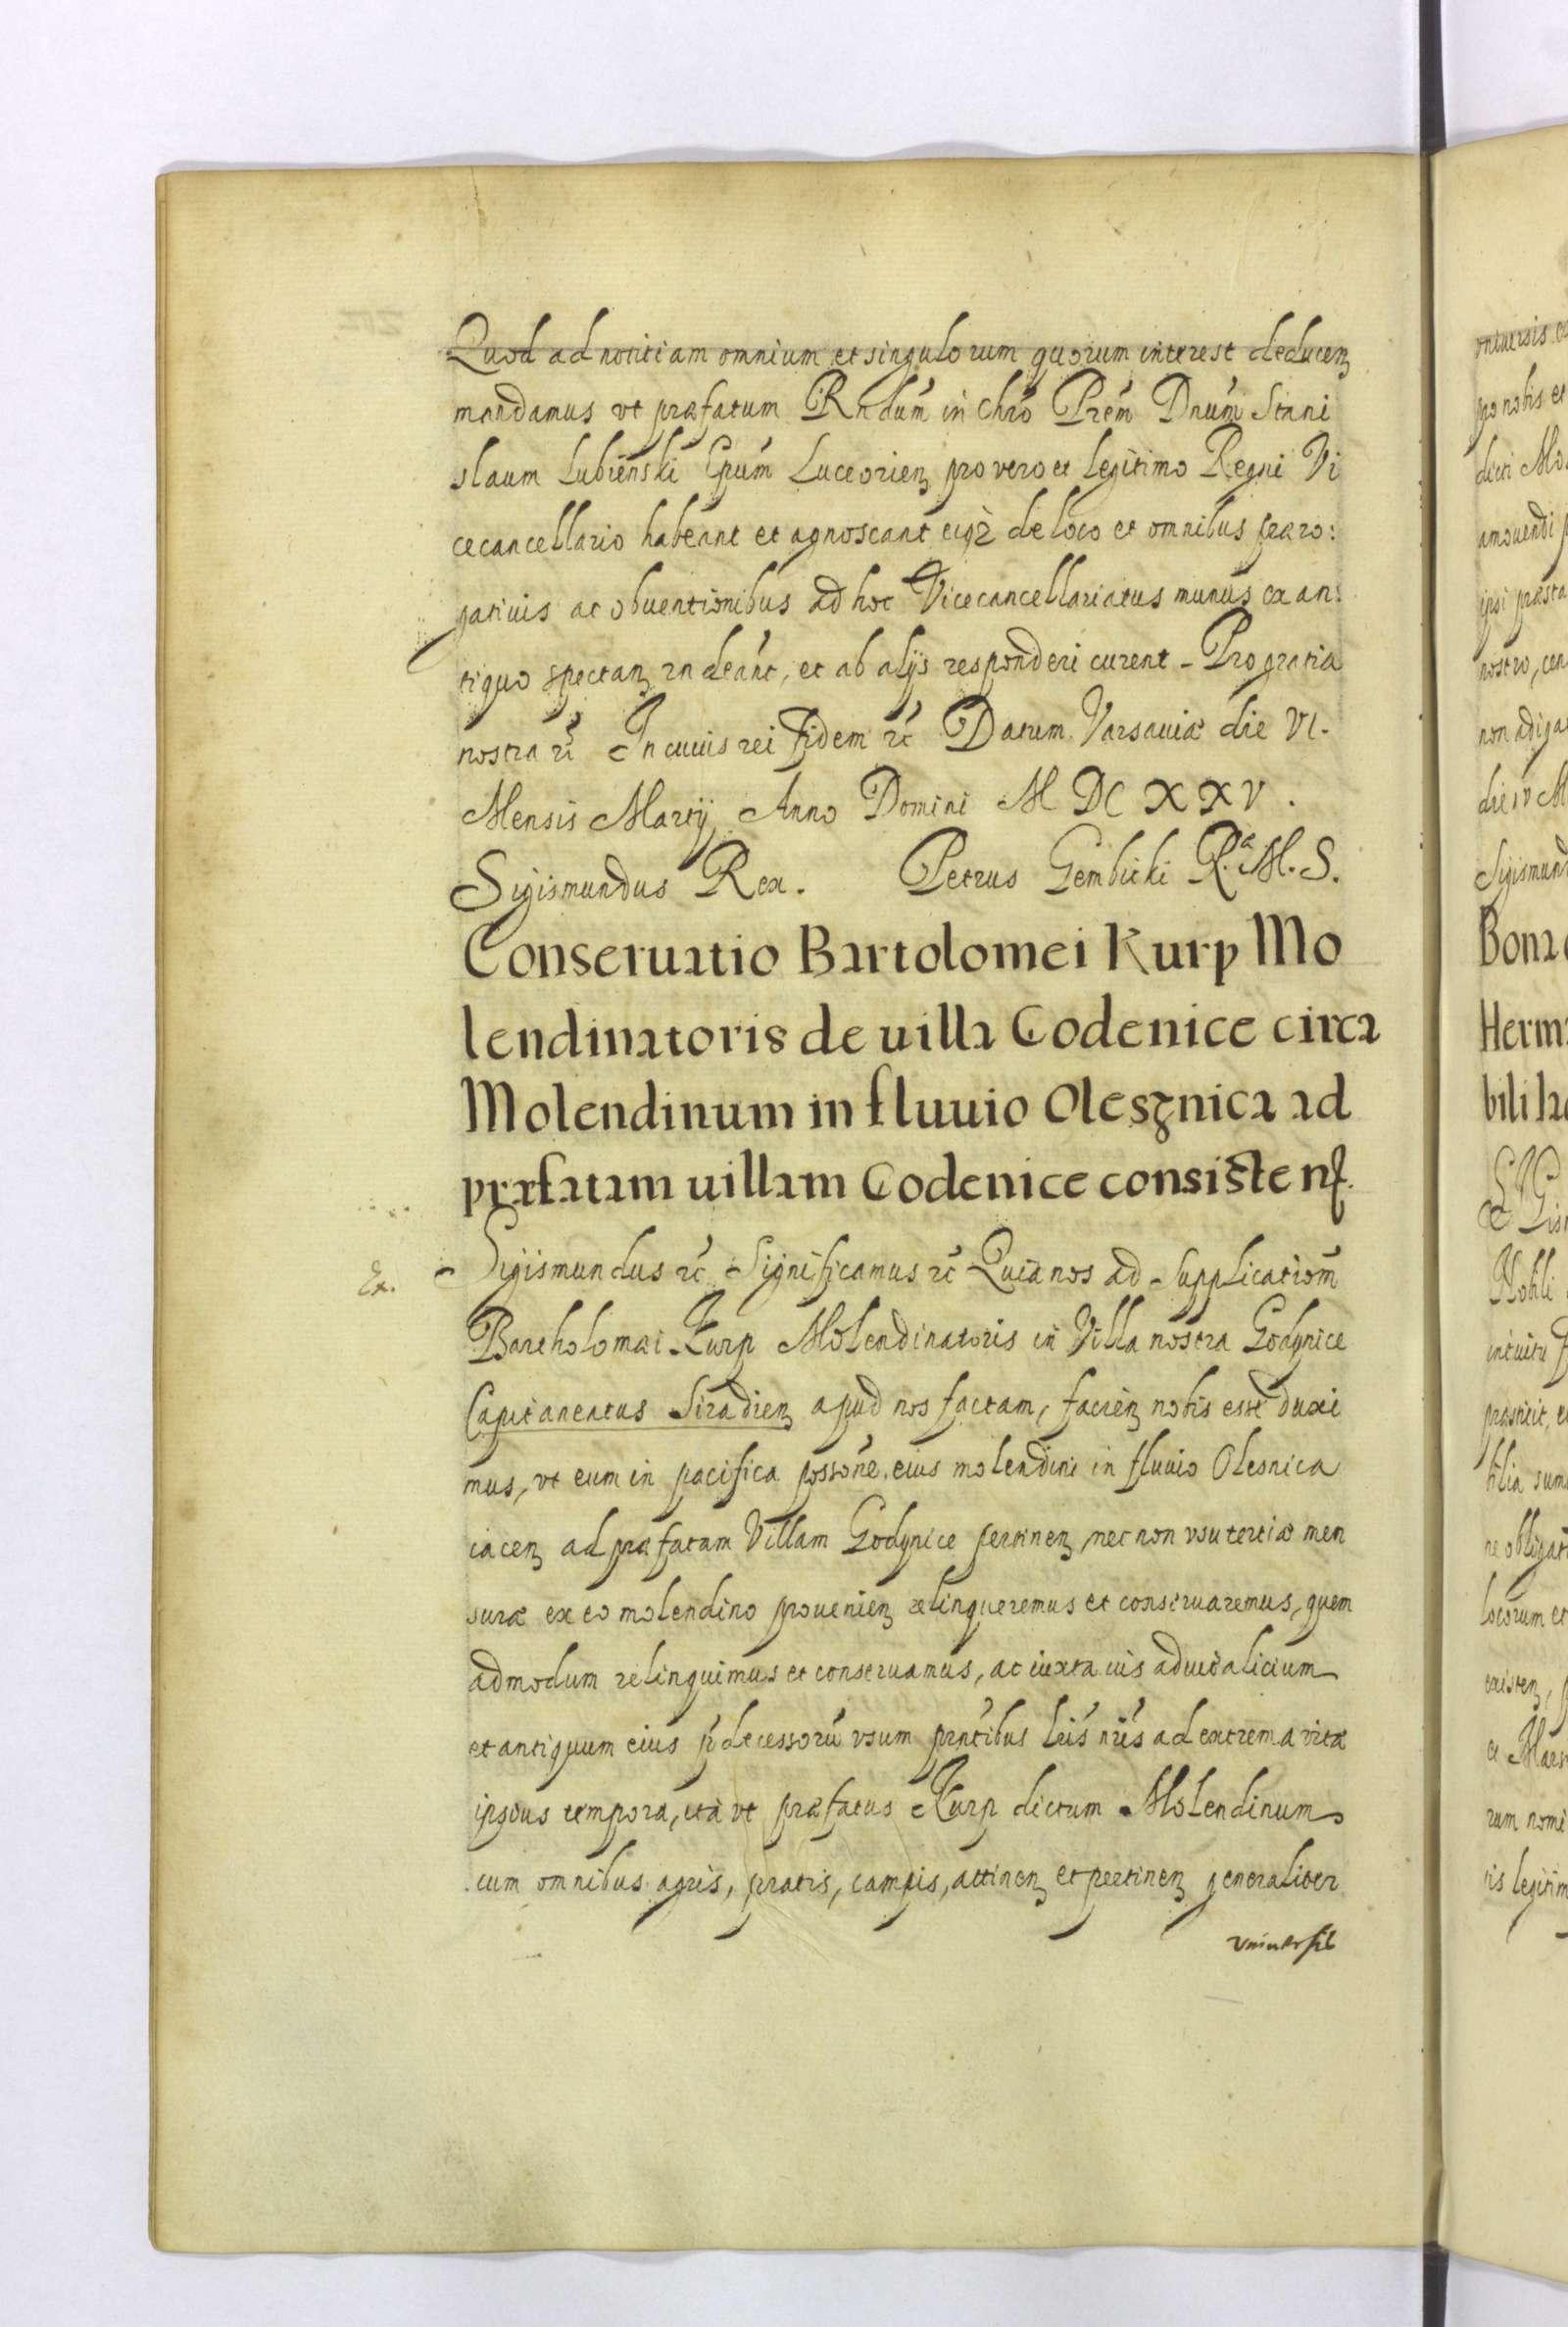 Quod ad notitiam omnium et singulorum quorum interest deducen
mandamus vt præfatum Rndum̃ in Chro͂ Prem̃ Dnum̃ Stani
slaum Lubienski Epum̃ Luceorien pro vero et legitimo Regni Vi
cecancellario habeant et agnoscant eiqz de loco et omnibus præro:
gatiuis ac obuentionibus ad hoc Vicecancellariatus munus ex an:
tiquo spectan rn̄deant, et ab alijs responderi curent - Pro gratia
nostra etc̃ In cuius rei fidem etc̃ Datum Varsauiæ die VI.
Mensis Martij Anno Domini M DC XXV.
Sigismundus Rex. Petrus Gembicki R. M. S.
Conseruatio Bartolomei Kurp Mo
lendinatoris de uilla Godenice circa
Molendinum in fluuio Olesznica ad
præfatam uillam Godenice consisten.
Ex. Sigismundus etc̃ Significamus etc̃ Quia nos ad supplicatiom̃
Bartholomæi Kurp Molendinatoris in Villa nostra Godynice
Capitaneatus Siradien apud nos factam, facien nobis esse duxi
mus, vt eum in pacifica posson̄e eius molendini in fluuio Olesnica
iacen ad præfatam Villam Godynice pertinen, nec non vsu tertiæ men
suræ ex eo molendino prouenien relinqueremus et conseruaremus, quem
admodum relinquimus et conseruamus, ac iuxta ius aduitalicium
et antiquum eius p̄decessorũ vsum pn̄tibus lr̄is nr̄is ad extrema vitæ
ipsius tempora, ita vt præfatus Kurp dictum Molendinum
cum omnibus agris, pratis, campis, attinen et pertinen generaliter
vniuersis